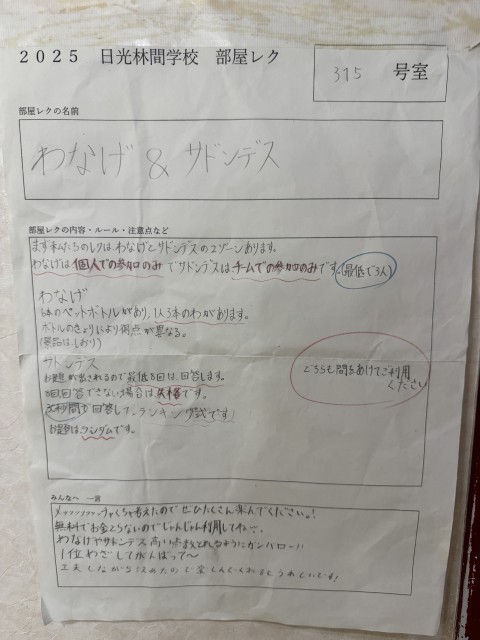 2025 日光林間学校 部屋レク
315 号室
部屋レクの名前
わなげ & サドンデス
部屋レクの内容・ルール・注意点など
まず私たちのレクは、わなげとサドンデスの2ゾーンあります。
わなげは個人での参加のみでサドンデスはチームでの参加のみです。(最低で3人)
わなげ
6本のペットボトルがあり、1人3本のわがあります。
ボトルのきょりにより得点が異なる。
(景品はしおり)
サドンデス
お題が出されるので最低8回は、回答します。
8回回答できない場合は失格です。
秒間で回答して、ランキング式です
お題は、ランダムです。
どちらも間をあけてご利用
ください
みんなへ 一言
ちゃくちゃ考えたのでぜひたくさん楽んでください。!
無料でお金とらないのでじゃんじゃん利用してね
わなげやサドンデス高い とれるようにガンバロー!!
1位めざしてがんばって〜
工夫しながら